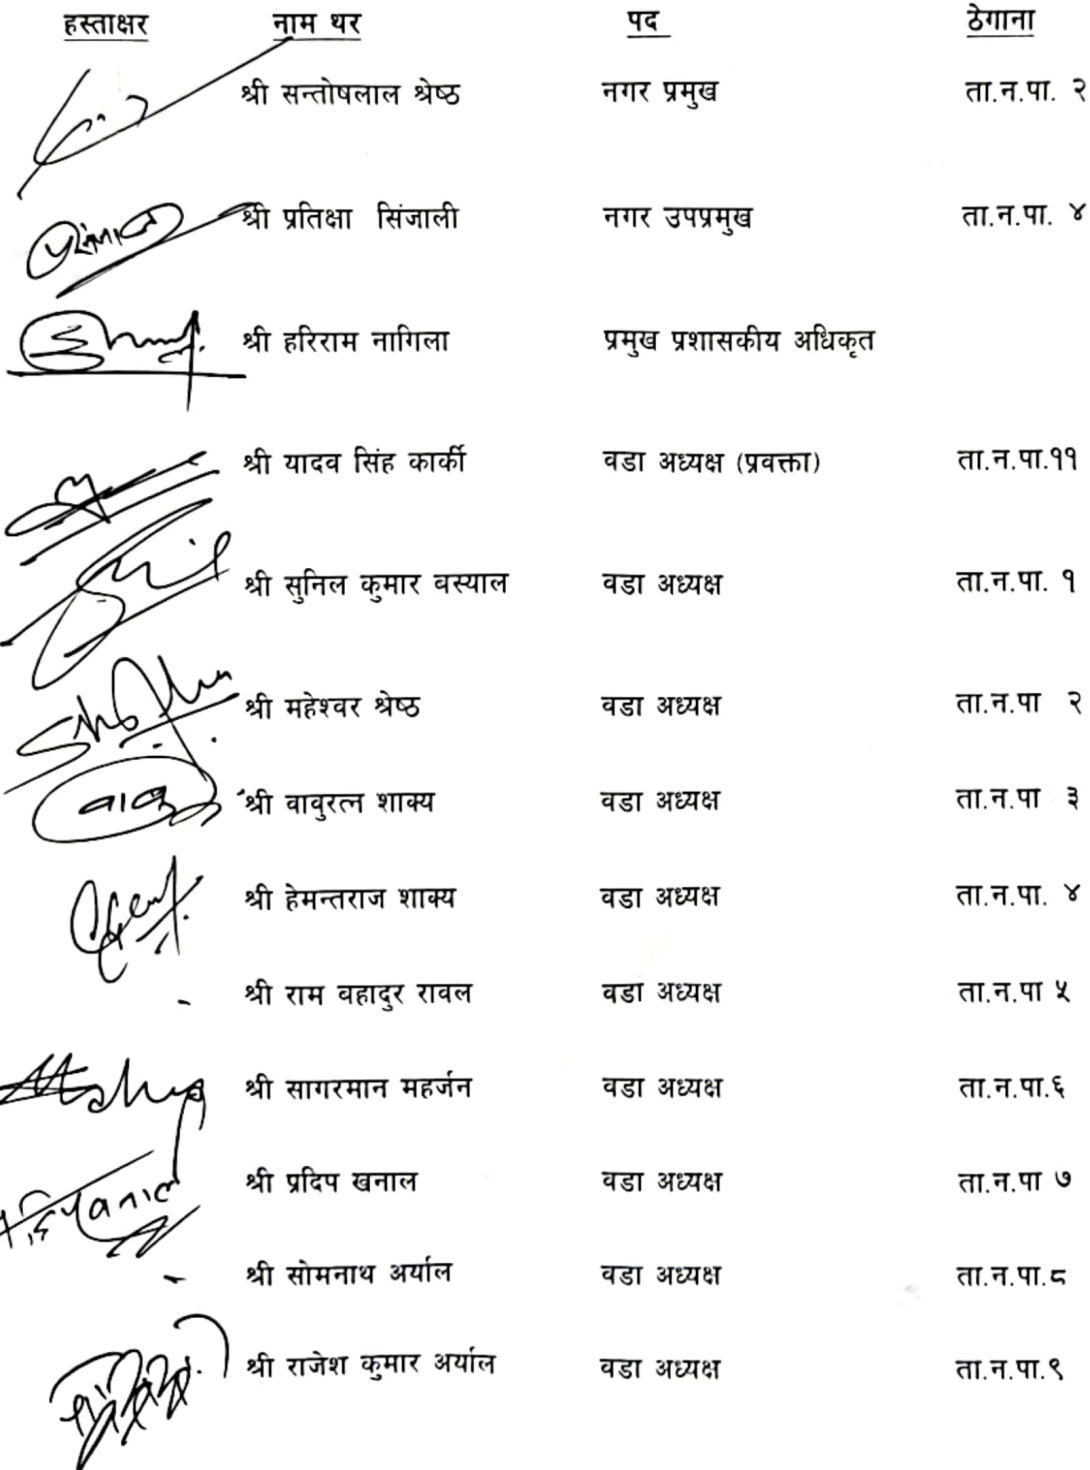 हस्ताक्षर नाम थर पद ठेगाना
श्री सन्तोषलाल श्रेष्ठ नगर प्रमुख ता.न.पा. २
श्री प्रतिक्षा सिंजाली नगर उपप्रमुख ता.न.पा. ४
श्री हरिराम नागिला प्रमुख प्रशासकीय अधिकृत
श्री यादव सिंह कार्की वडा अध्यक्ष (प्रवक्ता) ता.न.पा.११
श्री सुनिल कुमार बस्याल वडा अध्यक्ष ता.न.पा. १
श्री महेश्वर श्रेष्ठ वडा अध्यक्ष ता.न.पा २
वाबु श्री वावुरत्न शाक्य वडा अध्यक्ष ता.न.पा ३
श्री हेमन्तराज शाक्य वडा अध्यक्ष ता.न.पा. ४
- श्री राम बहादुर रावल वडा अध्यक्ष ता.न.पा ५
श्री सागरमान महर्जन वडा अध्यक्ष ता.न.पा.६
श्री प्रदिप खनाल वडा अध्यक्ष ता.न.पा ७
- श्री सोमनाथ अर्याल वडा अध्यक्ष ता.न.पा.८
श्री राजेश कुमार अर्याल वडा अध्यक्ष ता.न.पा.९